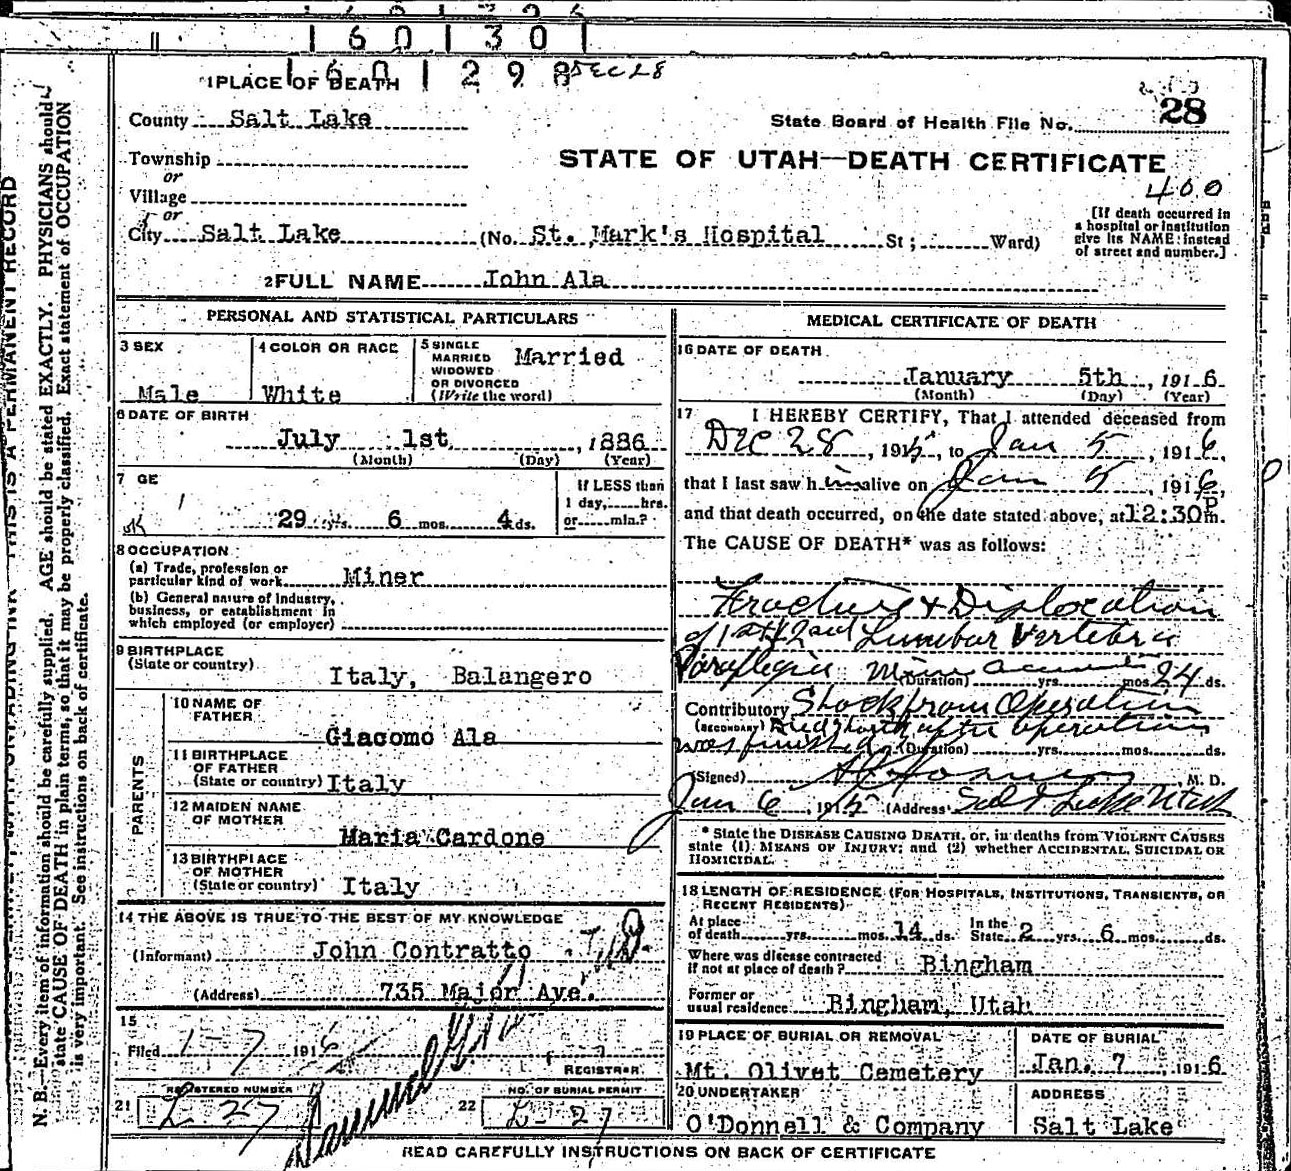 1 6 0 1 3 0 1
1 6 0 1 2 9 8 DEC 28
1 PLACE OF DEATH
28
County Salt Lake
State Board of Health File No.
Township
STATE OF UTAH—DEATH CERTIFICATE
or
400
Village
or
City Salt Lake (No. St. Mark's Hospital St; Ward)
[If death occurred in
a hospital or institution
give its NAME instead
of street and number.]
2 FULL NAME John Ala
PERSONAL AND STATISTICAL PARTICULARS
3 SEX
Male
4 COLOR OR RACE
White
5 SINGLE
MARRIED
WIDOWED
OR DIVORCED
(Write the word)
Married
6 DATE OF BIRTH
July 1st, 1886
(Month) (Day) (Year)
7 GE
29 yrs. 6 mos. 4 ds.
If LESS than
1 day, hrs.
or min.?
8 OCCUPATION
(a) Trade, profession or
particular kind of work Miner
(b) General nature of industry,
business, or establishment in
which employed (or employer)
9 BIRTHPLACE
(State or country)
Italy, Balangero
PARENTS
10 NAME OF
FATHER
Giacomo Ala
11 BIRTHPLACE
OF FATHER
(State or country) Italy
12 MAIDEN NAME
OF MOTHER
Maria Cardone
13 BIRTHPLACE
OF MOTHER
(State or country) Italy
14 THE ABOVE IS TRUE TO THE BEST OF MY KNOWLEDGE
(Informant) John Contratto
(Address) 735 Major Ave.
15
Filed 1-7 1916
REGISTRAR
REGISTERED NUMBER
21 L 27
NO. OF BURIAL PERMIT
22 L-27
MEDICAL CERTIFICATE OF DEATH
16 DATE OF DEATH
January 5th, 1916
(Month) (Day) (Year)
17 I HEREBY CERTIFY, That I attended deceased from
Dec 28, 1915, to Jan 5, 1916,
that I last saw him alive on Jan 5, 1916,
and that death occurred, on the date stated above, at 12:30 P m.
The CAUSE OF DEATH* was as follows:
Fracture & Dislocation
of 1st & 2nd Lumbar Vertebra
Paraplegia Mine accident (Duration) yrs. mos. 24 ds.
Contributory Shock from Operation
(SECONDARY) Died shortly after operation
was finished (Duration) yrs. mos. ds.
(Signed) M. D.
Jan 6, 1915 (Address) Salt Lake Utah
* State the DISEASE CAUSING DEATH, or, in deaths from VIOLENT CAUSES
state (1) MEANS OF INJURY; and (2) whether ACCIDENTAL, SUICIDAL OR
HOMICIDAL.
18 LENGTH OF RESIDENCE (FOR HOSPITALS, INSTITUTIONS, TRANSIENTS, OR
RECENT RESIDENTS)
At place
of death yrs. mos. 14 ds. In the
State 2 yrs. 6 mos. ds.
Where was disease contracted
if not at place of death? Bingham
Former or
usual residence Bingham, Utah
19 PLACE OF BURIAL OR REMOVAL
Mt. Olivet Cemetery
DATE OF BURIAL
Jan. 7, 1916
20 UNDERTAKER
O'Donnell & Company
ADDRESS
Salt Lake
READ CAREFULLY INSTRUCTIONS ON BACK OF CERTIFICATE
THIS IS A PERMANENT RECORD
N. B.—Every item of information should be carefully supplied. AGE should be stated EXACTLY. PHYSICIANS should
state CAUSE OF DEATH in plain terms, so that it may be properly classified. Exact statement of OCCUPATION
is very important. See instructions on back of certificate.